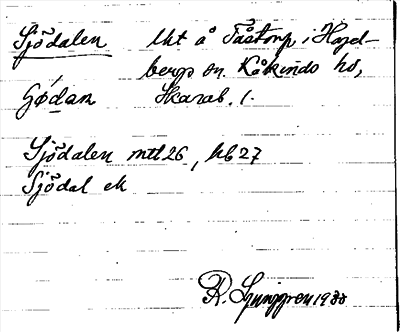 Sjödalen Utt å Tåstorp i Hagel-
berga sn. Kåkinds hd,
Gødan Skarab. l.
Sjödalen mtl 26, hb 27
Sjödal ek
R. Ljunggren 1930